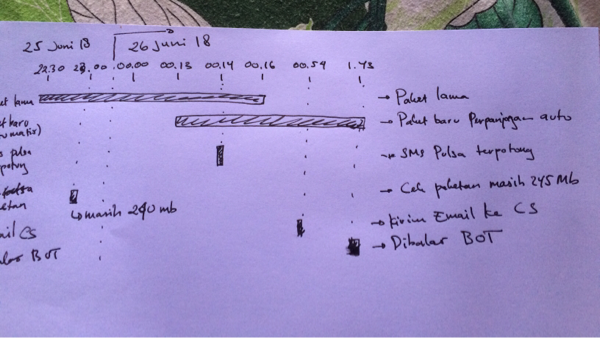 25 Juni 18 26 Juni 18
22.30 23.00 00.00 00.13 00.14 00.16 00.54 1.43
lama → Paket lama
baru → Paket baru Perpanjangan auto
pulsa → SMS Pulsa terpotong
→ Cek paketan masih 245 Mb
↳ masih 240 mb
CS → Kirim Email ke CS
BOT → Dibalas BOT